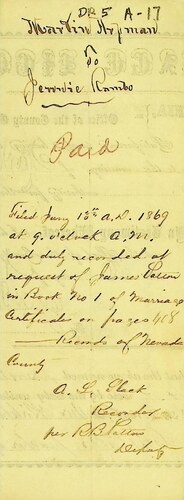 DR 5 A-17
Martin
To
Jennie Rambo
Paid
Filed Jany 13th A.D. 1869
at 9 o'clock A.M.
and duly recorded at
request of James
in Book No 1 of Marriage
Certificates on pages 418
Records of Nevada
County
Recorder
per R B Patton
Deputy